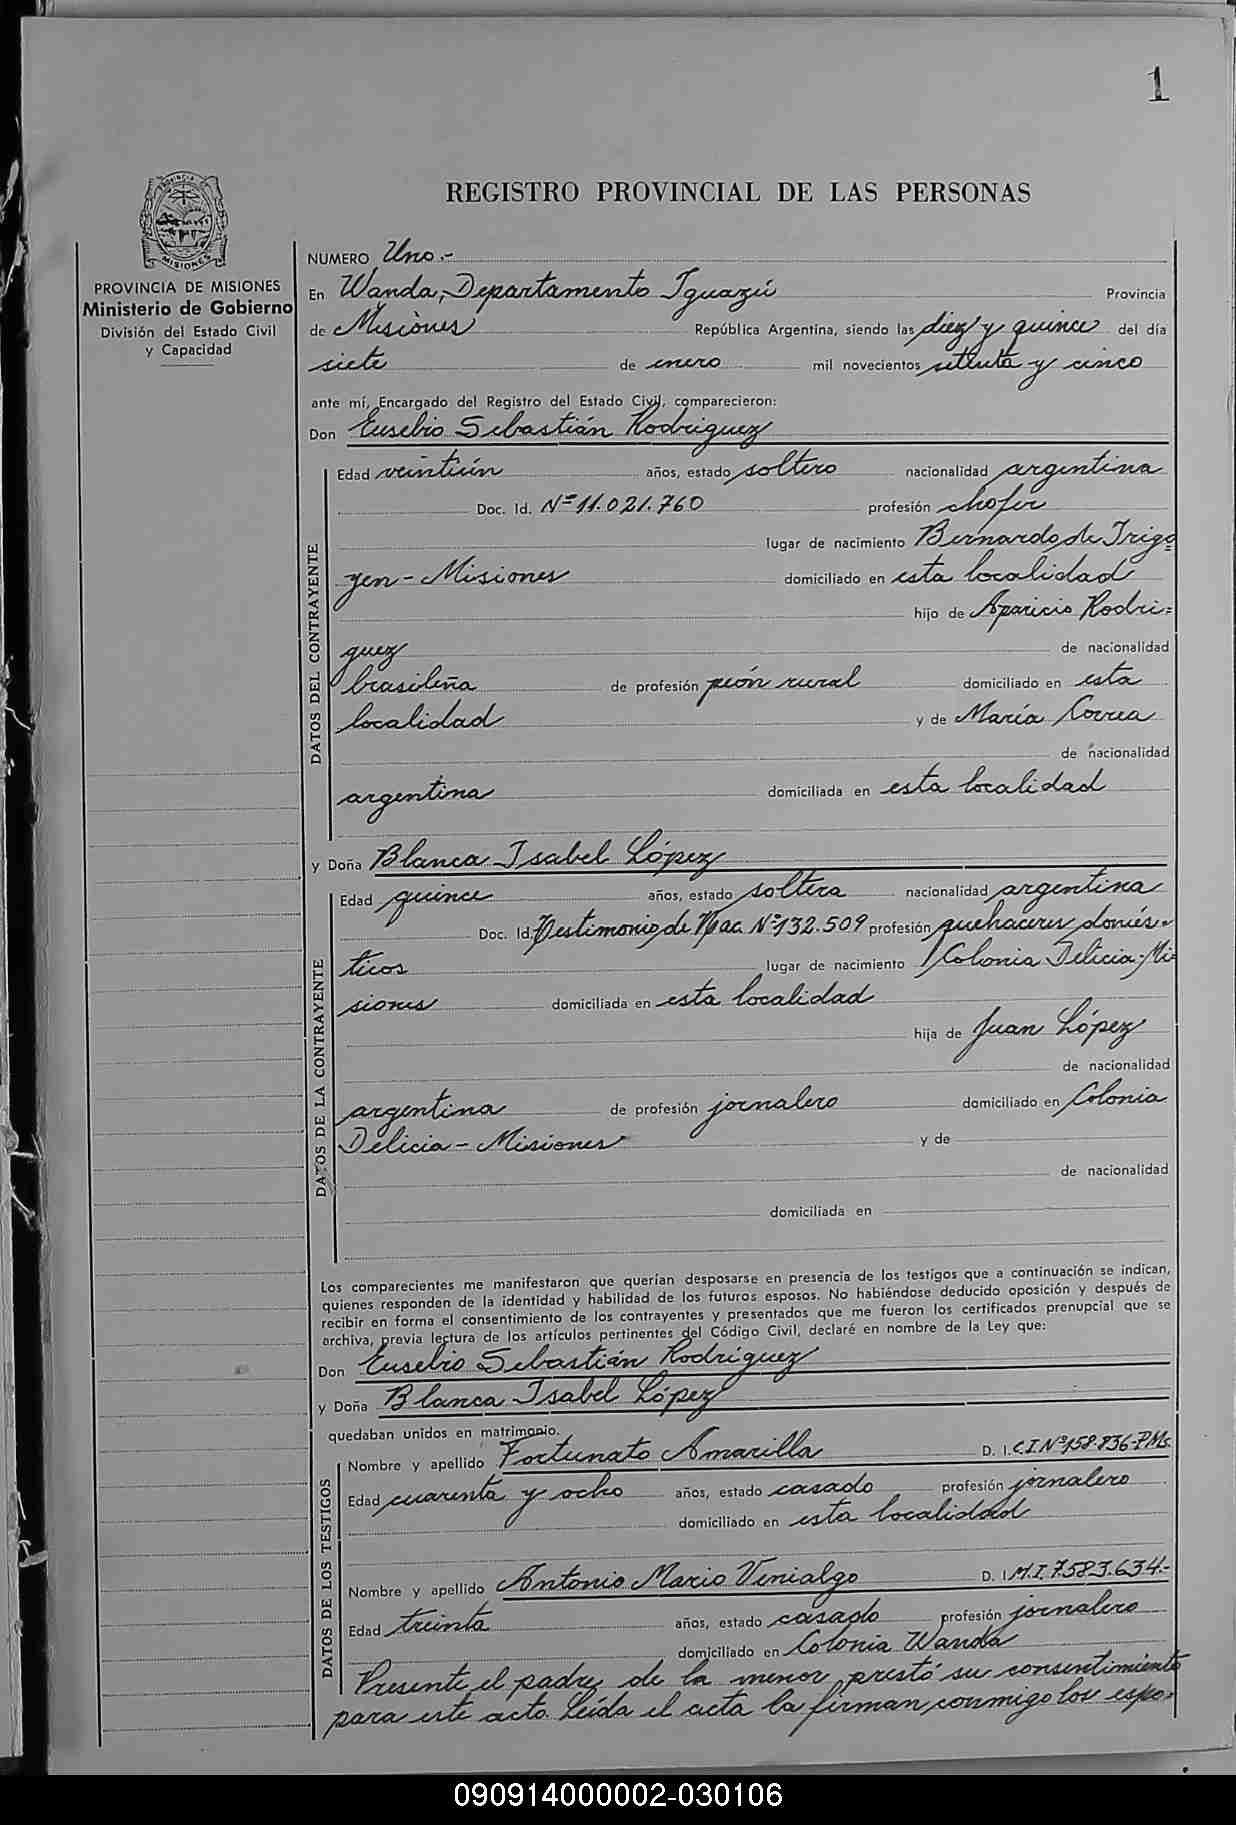 1
REGISTRO PROVINCIAL DE LAS PERSONAS
PROVINCIA DE
MISIONES
PROVINCIA DE MISIONES
Ministerio de Gobierno
División del Estado Civil
y Capacidad
NUMERO Uno.-
En Wanda, Departamento Iguazú Provincia
de Misiones República Argentina, siendo las diez y quince del día
siete de enero mil novecientos setenta y cinco
ante mí, Encargado del Registro del Estado Civil, comparecieron:
Don Eusebio Sebastián Rodriguez
DATOS DEL CONTRAYENTE
Edad veintiún años, estado soltero nacionalidad argentina
Doc. Id. Nº 11.021.760 profesión chofer
lugar de nacimiento Bernardo de Irigo=
yen - Misiones domiciliado en esta localidad
hijo de Aparicio Rodri=
guez de nacionalidad
brasileña de profesión peón rural domiciliado en esta
localidad y de María Correa
de nacionalidad
argentina domiciliada en esta localidad
y Doña Blanca Isabel López
DATOS DE LA CONTRAYENTE
Edad quince años, estado soltera nacionalidad argentina
Doc. Id. Testimonio de Nac. Nº 132.509 profesión quehaceres domés-
ticos lugar de nacimiento Colonia Delicia-Mi=
siones domiciliada en esta localidad
hija de Juan López
de nacionalidad
argentina de profesión jornalero domiciliado en Colonia
Delicia - Misiones y de
de nacionalidad
domiciliada en
Los comparecientes me manifestaron que querían desposarse en presencia de los testigos que a continuación se indican,
quienes responden de la identidad y habilidad de los futuros esposos. No habiéndose deducido oposición y después de
recibir en forma el consentimiento de los contrayentes y presentados que me fueron los certificados prenupcial que se
archiva, previa lectura de los artículos pertinentes del Código Civil, declaré en nombre de la Ley que:
Don Eusebio Sebastián Rodriguez
y Doña Blanca Isabel López
quedaban unidos en matrimonio.
DATOS DE LOS TESTIGOS
Nombre y apellido Fortunato Amarilla D. I. C.I. Nº 158.836-P.Ms.
Edad cuarenta y ocho años, estado casado profesión jornalero
domiciliado en esta localidad
Nombre y apellido Antonio Mario Venialgo D. I M.I. 7.583.634.-
Edad treinta años, estado casado profesión jornalero
domiciliado en Colonia Wanda
Presente el padre de la menor prestó su consentimiento
para este acto. Leída el acta la firman conmigo los espo-
090914000002-030106